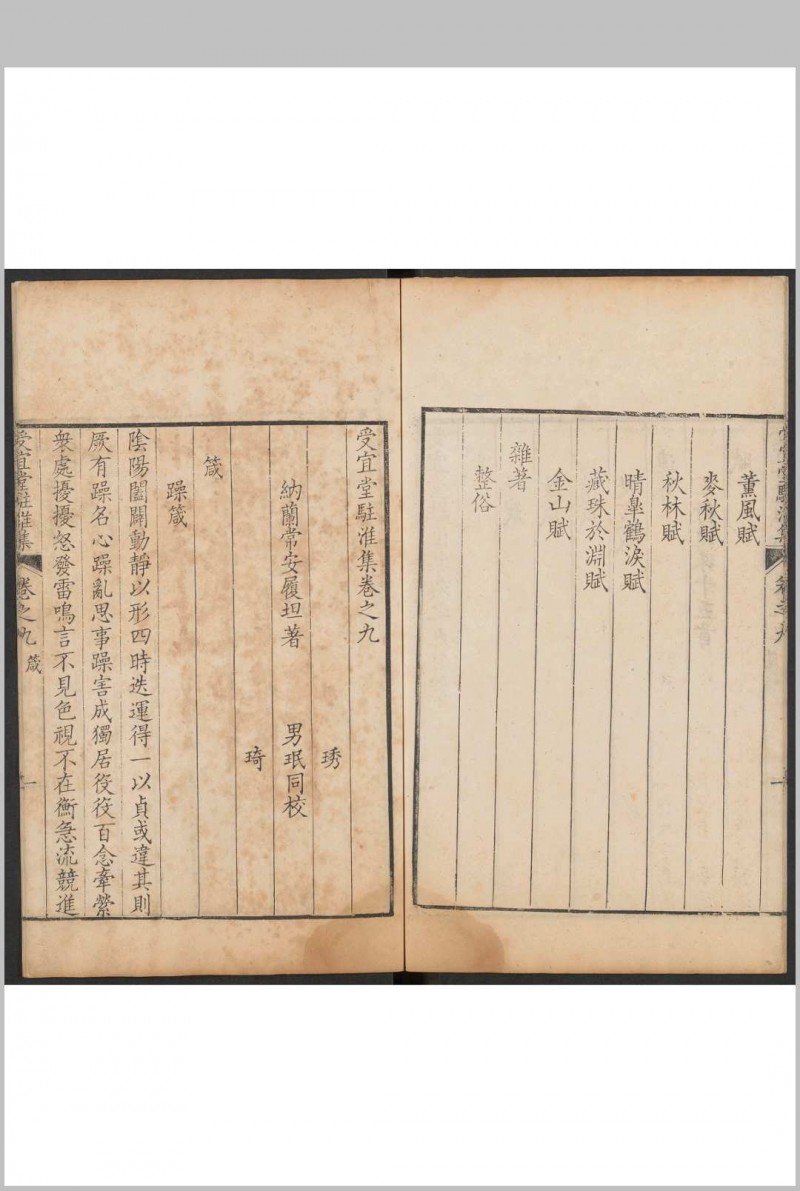 薰風賦
麥秋賦
秋林賦
晴臯鶴淚賦
藏珠於淵賦
金山賦
雜著
整俗
受宜堂駐淮集卷之九
琇
納蘭常安履坦著　男珉同校
琦
箴
躁箴
陰陽闔闢動靜以形四時迭運得一以貞或違其則
厥有躁名心躁亂思事躁害成獨居役役百念牽縈
衆處擾擾怒發雷鳴言不見色視不在衡急流競進
受宜堂駐淮集　卷之九　箴　一